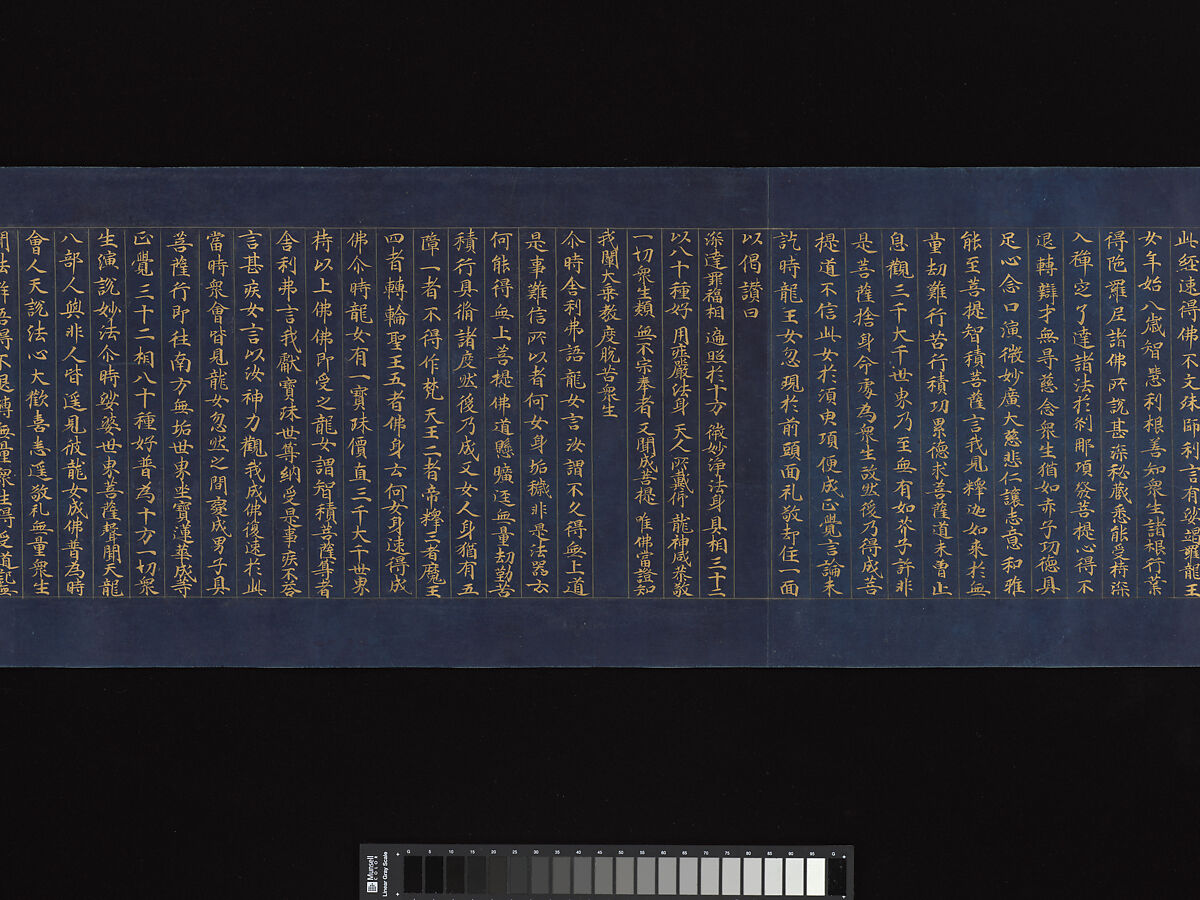 此經速得佛不文殊師利言有娑竭羅龍王
女年始八歲智慧利根善知衆生諸根行業
得陁羅尼諸佛所說甚深秘蔵悉能受持深
入禪定了達諸法於刹那頃發菩提心得不
退轉辯才無㝵慈念衆生猶如赤子功德具
足心念口演微妙廣大慈悲仁讓志意和雅
能至菩提智積菩薩言我見釋迦如来於無
量劫難行苦行積功累德求菩薩道未曽止
息觀三千大千世界乃至無有如芥子許非
是菩薩捨身命處為衆生故然後乃得成菩
提道不信此女於須臾頃便成正覺言論未
訖時龍王女忽現於前頭面礼敬却住一面
以偈讃曰
深達罪福相 遍照於十方 微妙淨法身 具相三十二
以八十種好 用莊嚴法身 天人所戴仰 龍神咸恭敬
一切衆生類 無不宗奉者 又聞成菩提 唯佛當證知
我闡大乗教 度脫苦衆生
尒時舎利弗語龍女言汝謂不久得無上道
是事難信所以者何女身垢穢非是法器云
何能得無上菩提佛道懸曠逕無量劫勤苦
積行具脩諸度然後乃成又女人身猶有五
障一者不得作梵天王二者帝釋三者魔王
四者轉輪聖王五者佛身云何女身速得成
佛尒時龍女有一寶珠價直三千大千世界
持以上佛佛即受之龍女謂智積菩薩尊者
舎利弗言我獻寶珠世尊納受是事疾不荅
言甚疾女言以汝神力觀我成佛復速於此
當時衆會皆見龍女忽然之間變成男子具
菩薩行即往南方無垢世界坐寶蓮華成等
正覺三十二相八十種好普為十方一切衆
生演說妙法尒時娑婆世界菩薩聲聞天龍
八部人與非人皆遥見彼龍女成佛普為時
會人天說法心大歡喜悉遥敬礼無量衆生
聞法解悟得不退轉無量衆生得受道記無
Munsell
COLOR
Linear Gray Scale
G 5 10 15 20 25 30 35 40 45 50 55 60 65 70 75 80 85 90 95 G